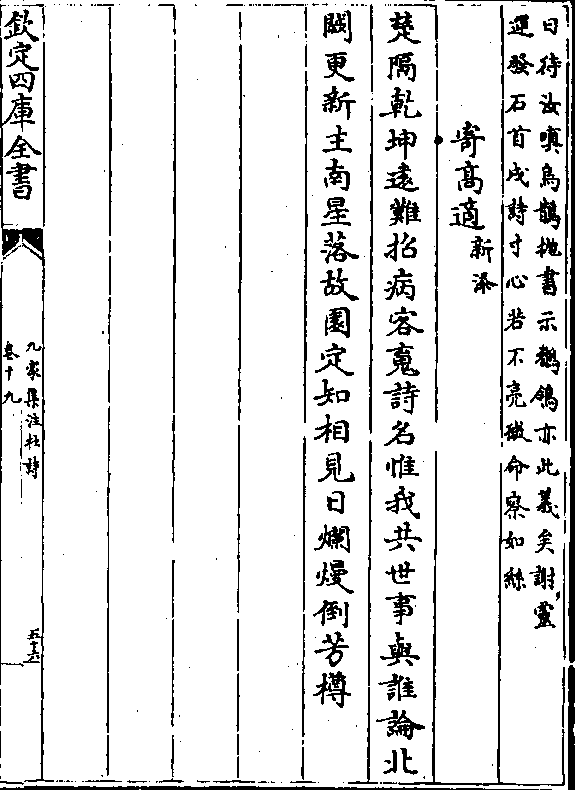 日待汝嗔烏鵲拋書示鶺鴒亦此義矣謝靈
運發石首戍詩寸心若不亮微命察如絲
寄髙適新添
楚隔乾坤逺難招病客䰟詩名惟我共世事與誰論北
闕更新主南星落故園定知相見日爛熳倒芳樽
欽定四庫全書
九家集注杜詩
卷十九
五十六